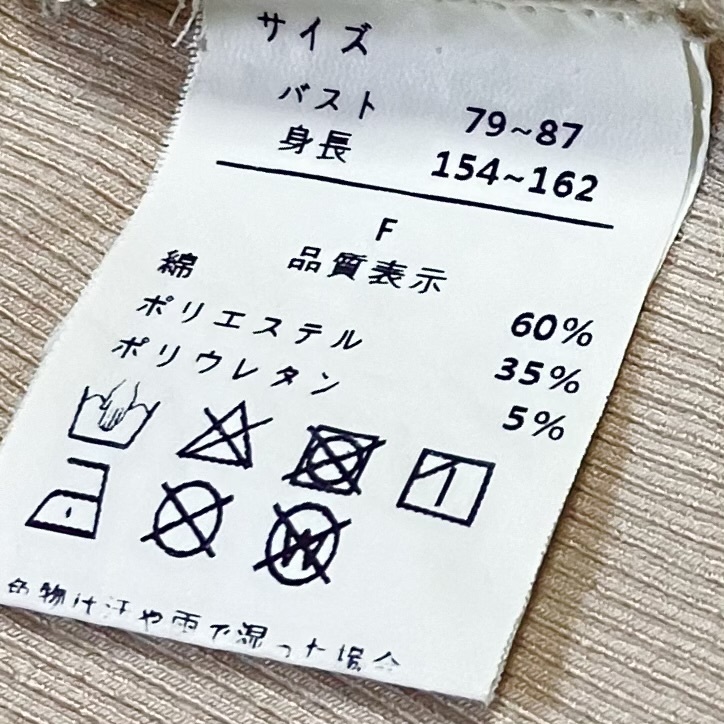 サイズ
バスト 79~87
身長 154~162
F
品質表示
綿 60%
ポリエステル 35%
ポリウレタン 5%
W
色物は汗や雨で湿った場合